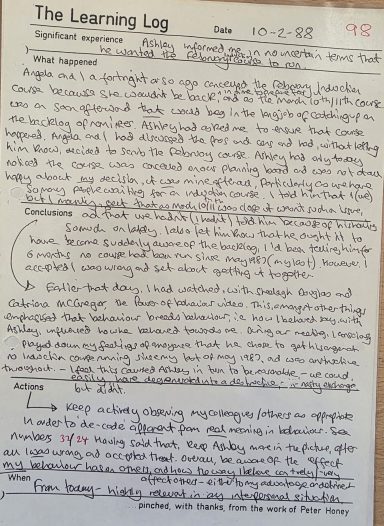 The Learning Log
Date 10-2-88 98
Significant experience Ashley informed me in no uncertain terms that
he wanted the February course to run.
What happened
Angela and I a fortnight or so ago cancelled the February Induction
course because she wouldn't be back, and as the March 10th/11th course
was so soon afterward that would begin the long job of catching up on
the backlog of nominees. Ashley had asked me to ensure that course
happened, Angela and I had discussed the pros and cons and had, without letting
him know, decided to scrub the February course. Ashley had only today
noticed the course was cancelled on our planning board and was not at all
happy about my decision, it was mine after all, particularly as we have
so many people waiting for a induction course. I told him that I (we)
but I mainly felt that as March 10/11 was close it wasn't such an issue,
Conclusions and that we hadn't (I hadn't) told him because of his having
so much on lately. I also let him know that he ought not to
have become suddenly aware of the backlog, I'd been telling him for
6 months no course had been run since May 1987 (my last). However I
accepted I was wrong and set about getting it together.
Earlier that day, I had watched, with Sheelagh Douglas and
Catriona McGregor, the Power of Behaviour video. This, amongst other things
emphasised that behaviour breeds behaviour, i.e. how I behaved, say, with
Ashley, influenced how he behaved towards me. During our meeting, I consciously
played down my feelings of annoyance that he chose to get his
no induction course running since my last of May 1987, and was constructive
throughout. - I feel this caused Ashley in turn to be reasonable - we could
easily have degenerated into a destructive - or nasty exchange
but didn't.
Actions
Keep actively observing my colleagues/others as appropriate
in order to de-code apparent from real meaning in behaviour. See
numbers 32/24 Having said that, keep Ashley more in the picture, after
all I was wrong and accepted that. Overall, be aware of the effect
my behaviour has on others, and how the way I behave can truly
affect others - either to my advantage or
When From today - highly relevant in any interpersonal situation.
pinched, with thanks, from the work of Peter Honey